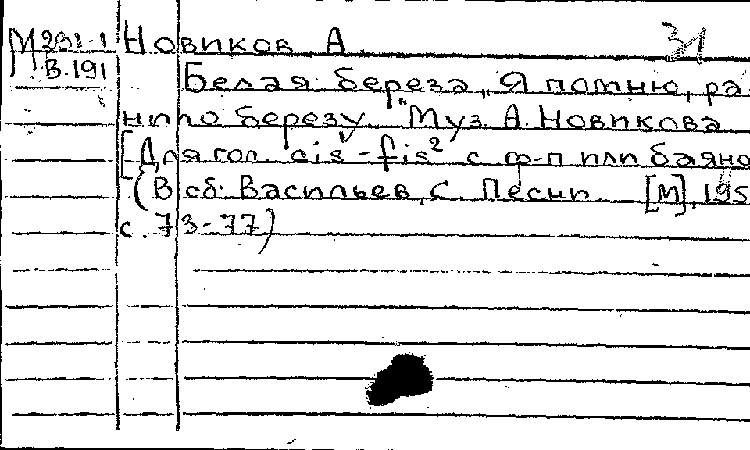 М 291-1 Новиков, А. 31
В.191
Белая береза, "Я помню, ра-
нило березу" Муз. А. Новикова
[Для гол. cis¹-fis² с ф-п или баяно
(В сб: Васильев, С. Песни. [М], 195
с. 73-77)